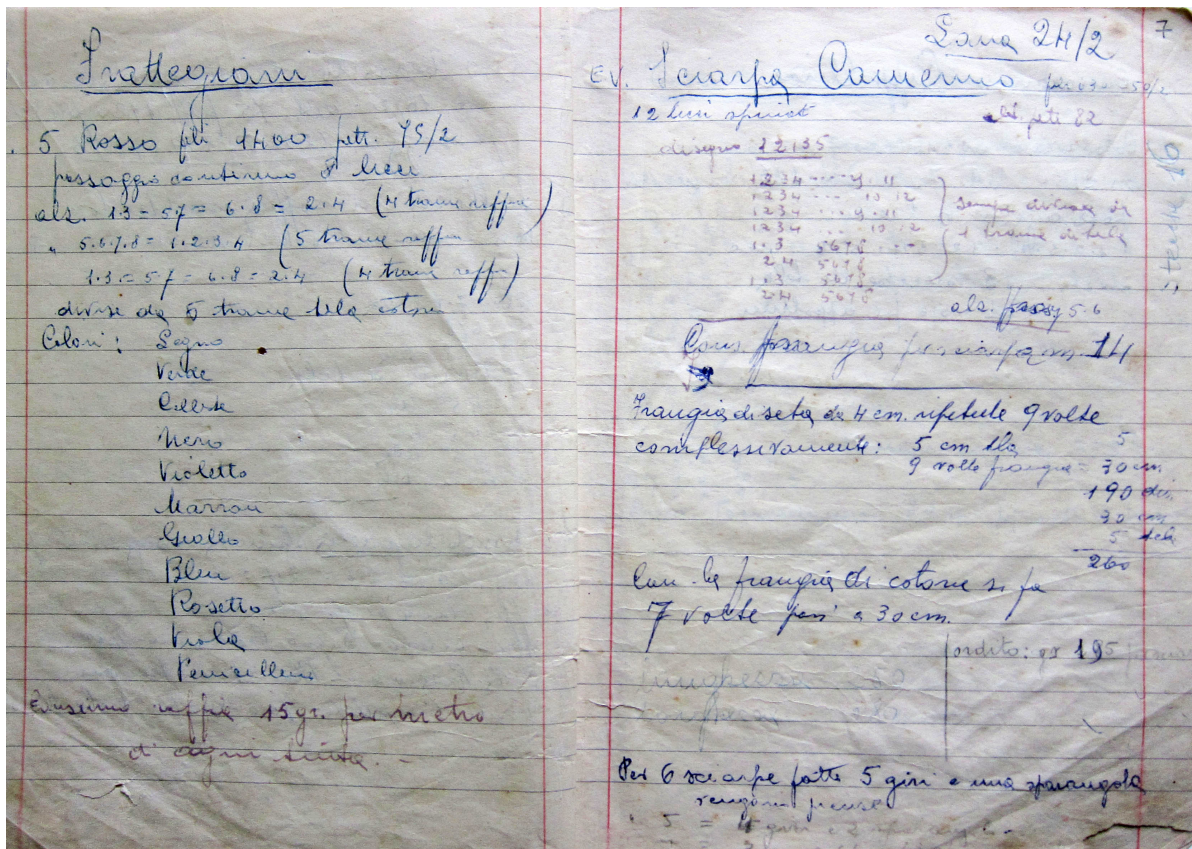 Frattegiani
5 Rosso fili 1400 pett. 75/2
passaggio continuo 8 licci
alz. 1 3 = 5 7 = 6.8 = 2.4 (4 trame raffia)
" 5.6.7.8 = 1.2.3.4 (5 trame raffia
1.3. = 5 7 = 6.8 = 2.4 (4 trame raffia)
divise da 5 trame tela cotone
Colori: Legno
Verde
Celeste
Nero
Violetto
Marron
Giallo
Bleu
Rosetto
Viola
Consumo raffia 15 gr. per metro
di ogni
7
Lana 24/2
EV. Sciarpa Camerino
12 licci
pett. 82
disegno 12135
1 2 3 4 9. 11
1 2 3 4 10 12
1 2 3 4 9. 11
1 2 3 4 10 12
1.3 5678
2 4 5678
1.3 5678
2 4 5678
sempre divisa da
1 trama di tela
alz. 5.6
Cons. frangia per sciarpa m. 14
Frangia di seta da 4 cm. ripetute 9 volte
complessivamente: 5 cm tela 5
9 volte frangia = 30 cm.
190 dis.
30 cm
5 tela
260
Con la frangia di cotone si fa
7 volte pari a 30 cm.
ordito: gr 195
Per 6 sciarpe fatte 5 giri e una sparangola
5 = 4 giri e 2